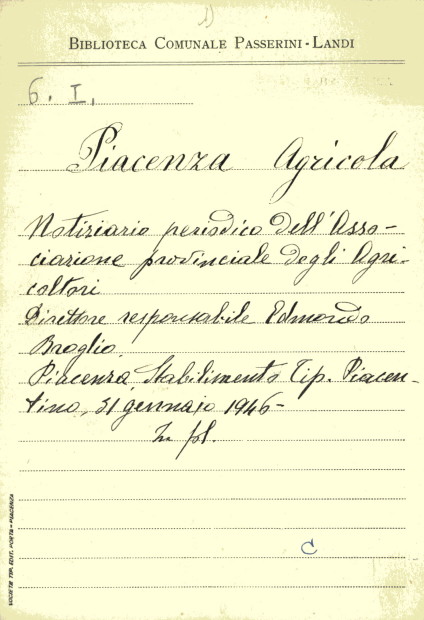 1)
BIBLIOTECA COMUNALE PASSERINI-LANDI
6. I.
Piacenza Agricola
Notiziario periodico dell'Asso-
ciazione provinciale degli Agri-
coltori
Direttore responsabile Edmondo
Broglio.
Piacenza, Stabilimento Tip. Piacen-
tino, 31 gennaio 1946-
fol.
C
SOCIETÀ TIP. EDIT. PORTA - PIACENZA